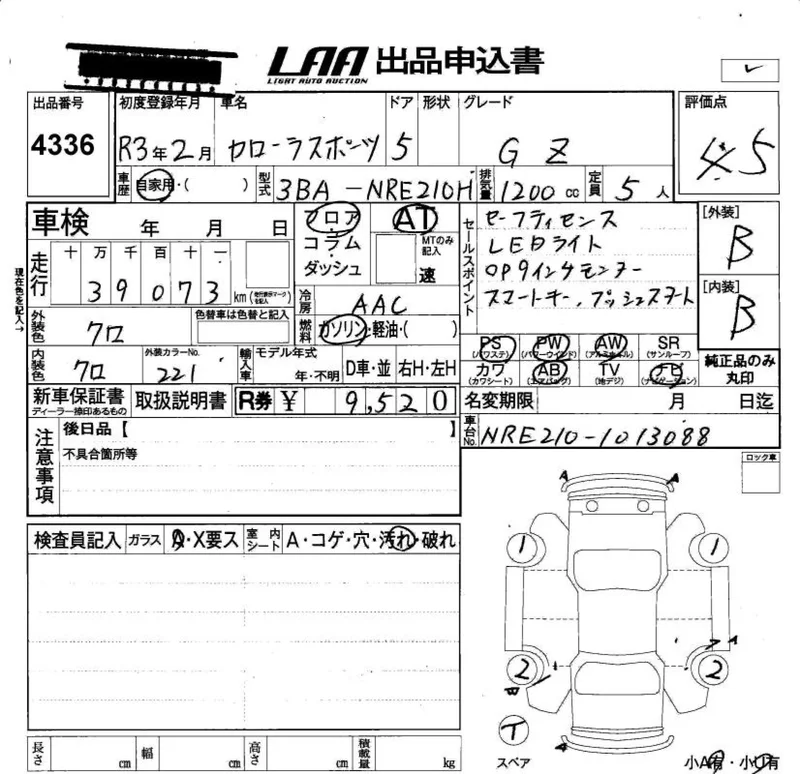 LAA 出品申込書
LIGHT AUTO AUCTION
出品番号 初度登録年月 車名 ドア 形状 グレード 評価点
4336 R3年2月 カローラスポーツ 5 GZ 4.5
車歴 自家用・( ) 型式 3BA-NRE210H 排気量 1200cc 定員 5人
車検 年 月 日 フロア AT セールスポイント セーフティセンス [外装]
コラム MTのみ記入 LEDライト B
走行 十 万 千 百 十 一 ダッシュ 速 OP9インチモニター
39073 km (走行表示マークを記入) スマートキー、プッシュスタート [内装]
現在色を記入→ 冷房 AAC B
外装色 クロ 色替車は色替と記入 燃料 ガソリン・軽油・( )
PS (パワステ) PW (パワーウインド) AW (アルミホイル) SR (サンルーフ)
内装色 クロ 外装カラーNo. 221 輸入車 モデル年式 年・不明 D車・並 右H・左H
カワ (カワシート) AB (エアバッグ) TV (地デジ) ナビ (ナビゲーション) 純正品のみ丸印
新車保証書 ディーラー捺印あるもの 取扱説明書 R券 ¥ 9,520 名変期限 月 日迄
注意事項 後日品【 】 車台No. NRE210-1013088
不具合箇所等 ロック車
A A
検査員記入 ガラス A・X要ス 室内シート A・コゲ・穴・汚れ・破れ
1 1
A
2 2
W
T
スペア A 小A有・小U有
長さ cm 幅 cm 高さ cm 積載量 kg